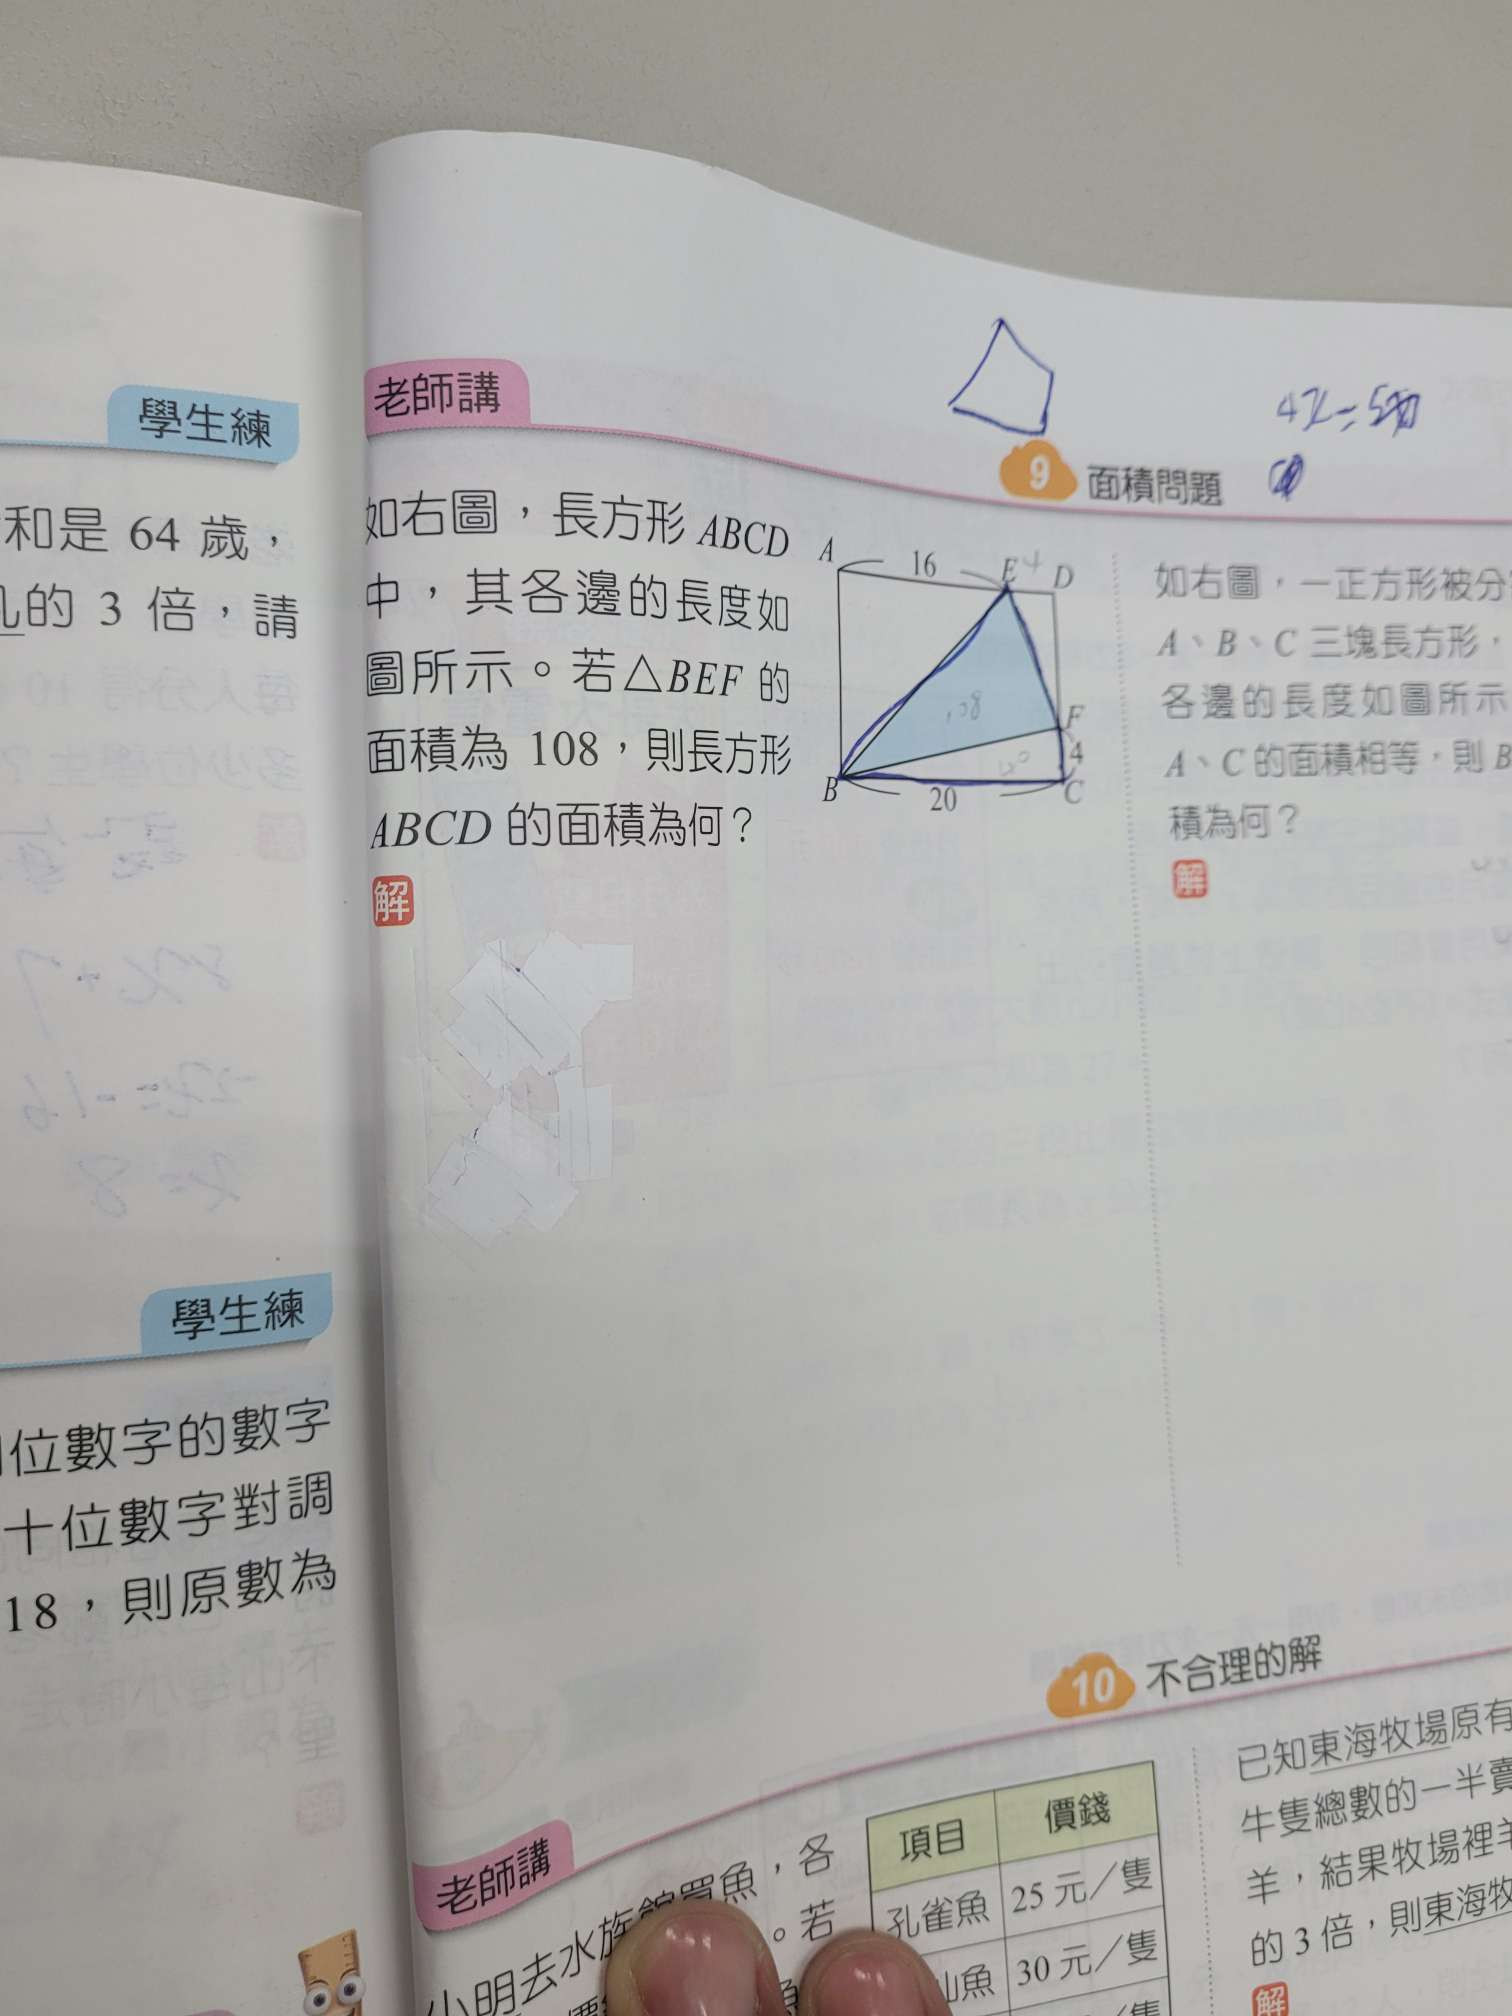 學生練
和是 64 歲，
的 3 倍，請
學生練
位數字的數字
十位數字對調
18，則原數為
老師講
4x=5
9 面積問題
如右圖，長方形 ABCD
中，其各邊的長度如
圖所示。若△BEF 的
面積為 108，則長方形
ABCD 的面積為何？
解
A 16 E 4 D
108
F
4
B 20 C
如右圖，一正方形被分
A、B、C 三塊長方形，
各邊的長度如圖所示
A、C 的面積相等，則 B
積為何？
解
10 不合理的解
老師講
小明去水族館買魚，各
。若
項目 價錢
孔雀魚 25 元／隻
魚 30 元／隻
已知東海牧場原有
牛隻總數的一半賣
羊，結果牧場裡羊
的 3 倍，則東海牧
解